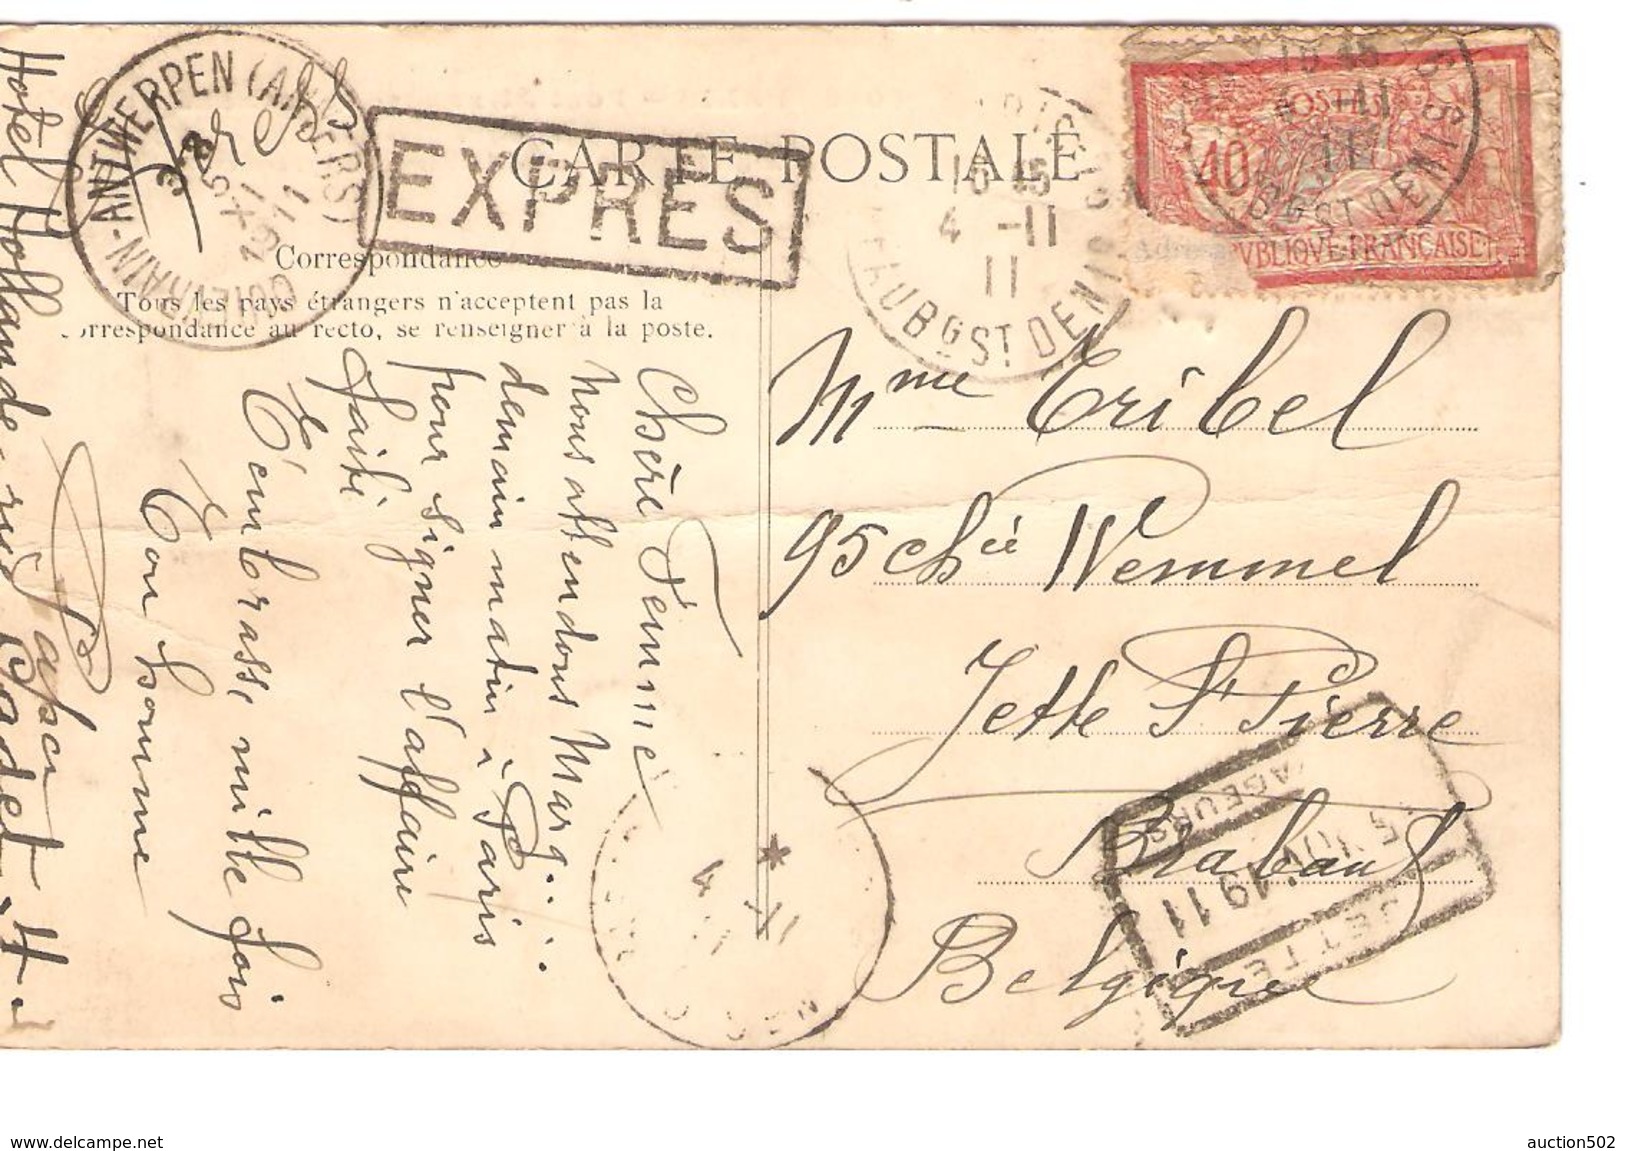 CARTE POSTALE
EXPRÈS
Correspondance
Tous les pays étrangers n'acceptent pas la
correspondance au recto, se renseigner à la poste.
Chère Femme
Nous attendons Marq...
demain matin à Paris
pour signer l'affaire
faite
T'embrasse mille fois
Ton homme
Hotel Hollande rue Cadet 4
Mme Tribel
95 Chée Wemmel
Jette St Pierre
Brabant
Belgique
POSTES
40
RÉPUBLIQUE FRANÇAISE
ANTWERPEN (ANVERS)
QUIEVRAIN
FAUBG ST DENIS
4 -11
11
JETTE
5 NOV. 1911
VOYAGEURS
www.delcampe.net
auction502